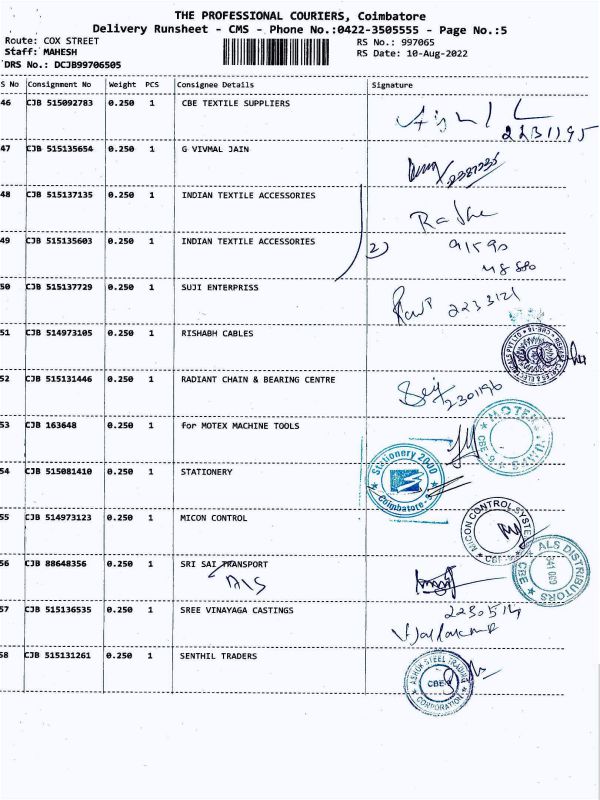 THE PROFESSIONAL COURIERS, Coimbatore
Delivery Runsheet - CMS - Phone No.:0422-3505555 - Page No.:5
Route: COX STREET
RS No.: 997065
Staff: MAHESH
RS Date: 10-Aug-2022
DRS No.: DCJB99706505
S No Consignment No Weight PCS Consignee Details Signature
46 CJB 515092783 0.250 1 CBE TEXTILE SUPPLIERS
2231195
47 CJB 515135654 0.250 1 G VIVMAL JAIN
48 CJB 515137135 0.250 1 INDIAN TEXTILE ACCESSORIES
49 CJB 515135603 0.250 1 INDIAN TEXTILE ACCESSORIES 2)
91590
48580
50 CJB 515137729 0.250 1 SUJI ENTERPRISS
2233121
51 CJB 514973105 0.250 1 RISHABH CABLES
52 CJB 515131446 0.250 1 RADIANT CHAIN & BEARING CENTRE
2301196
53 CJB 163648 0.250 1 for MOTEX MACHINE TOOLS
CBE
54 CJB 515081410 0.250 1 STATIONERY
Stationery 2000
Coimbatore-
55 CJB 514973123 0.250 1 MICON CONTROL
MICON CONTROL SYSTEM
56 CJB 88648356 0.250 1 SRI SAI TRANSPORT
AlS
ALS DISTRIBUTORS
CBE
641 009
57 CJB 515136535 0.250 1 SREE VINAYAGA CASTINGS
2230514
58 CJB 515131261 0.250 1 SENTHIL TRADERS
ASHOK STEEL TRADING
CBE
CORPORATION